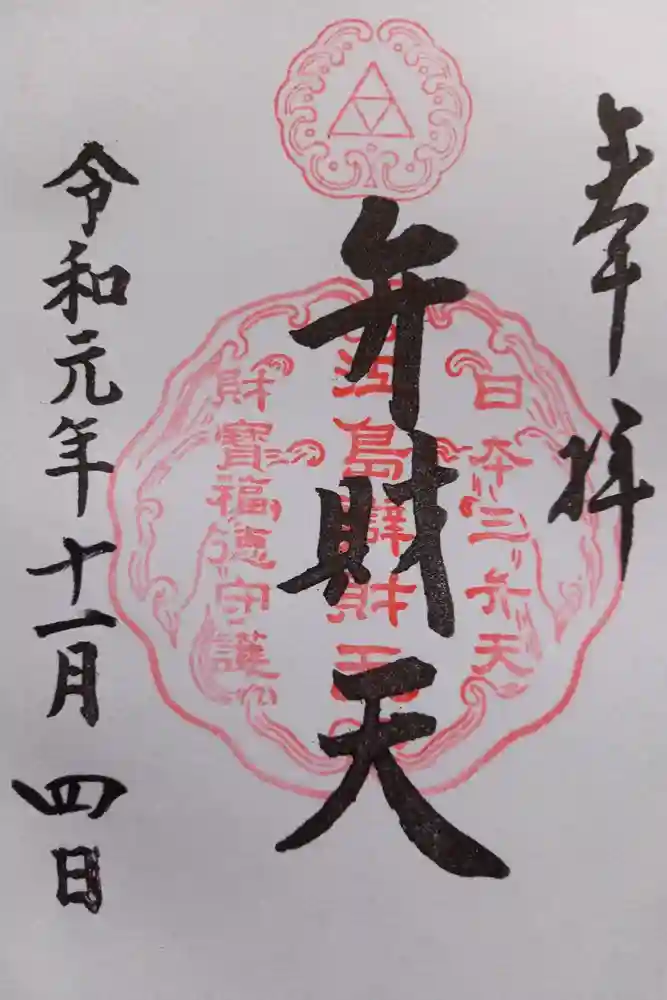 奉拝
日本三弁天
弁財天
江島辯財天
財寶福徳守護
令和元年十一月四日